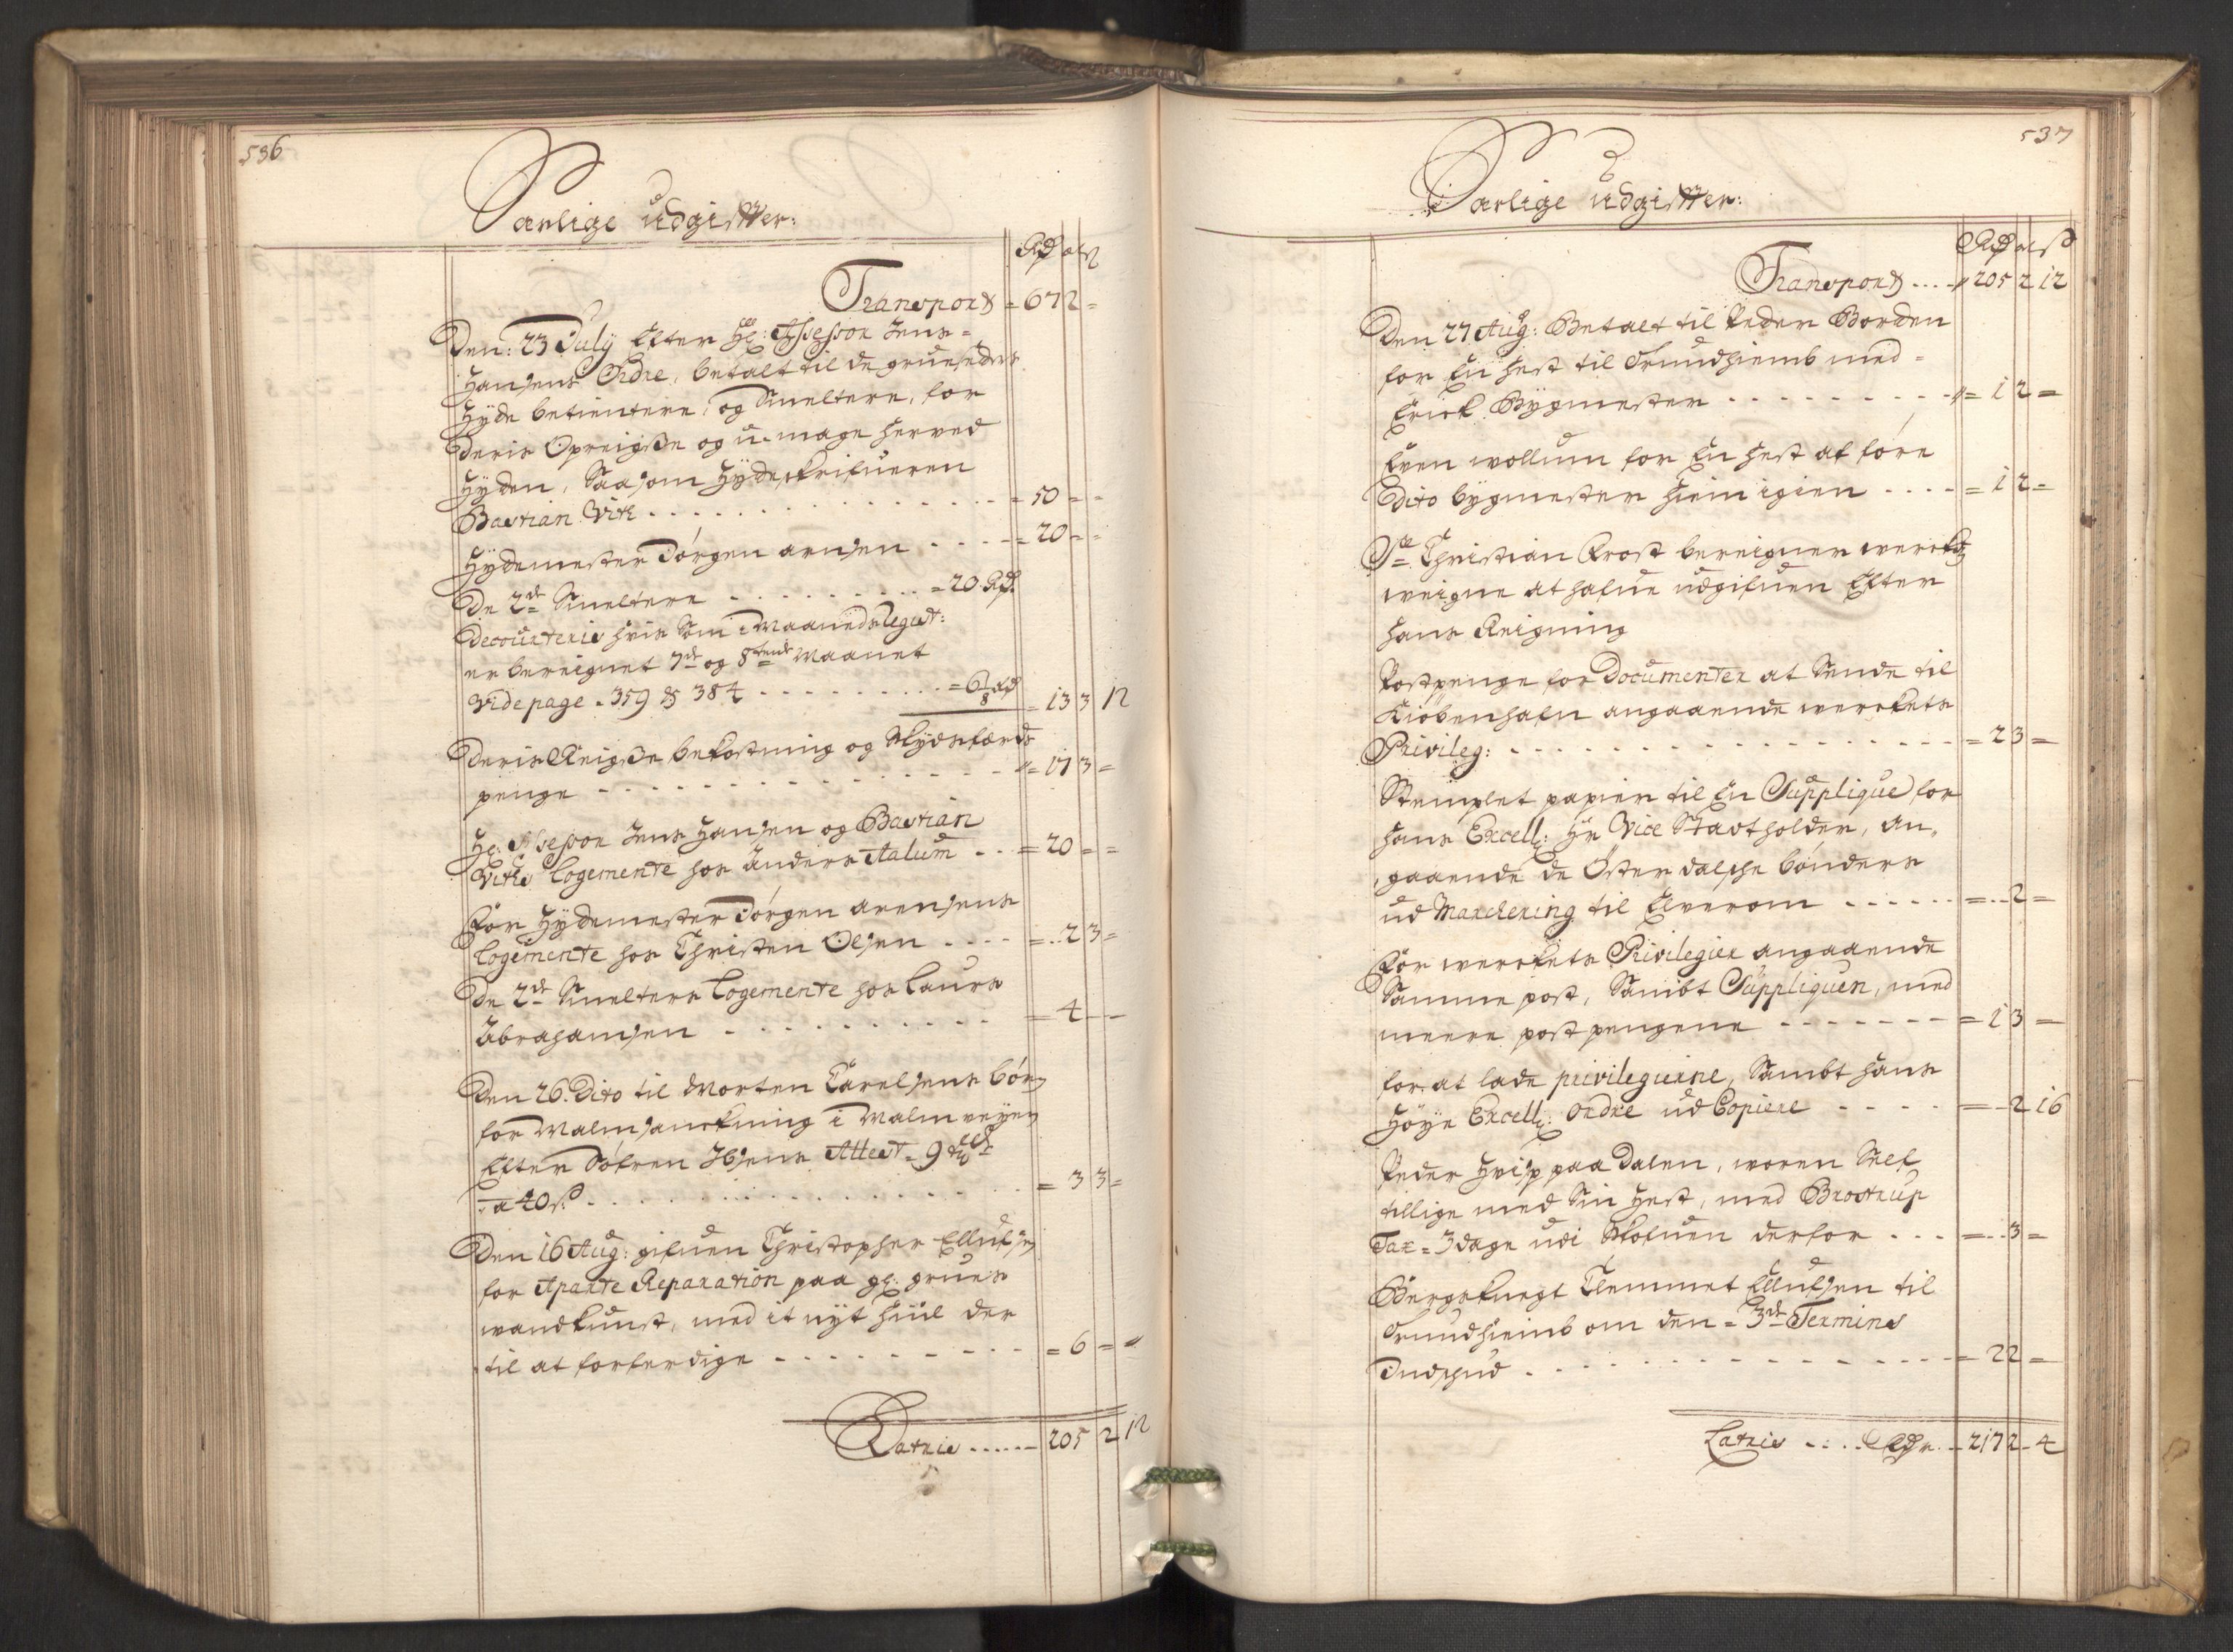 536
Særlige Udgifter:
Rd ort ß
Transport = 67 2 =
Den: 23 July Efter Hr: Assessor Jens
Hansens Ordre, betalt til de gruesedes
Hyde betientere, og Smeltere, for
deris Opreigße og u-mage herved
Hyden, Saasom Hydeskrifueren
Bastian Vitk . . . = 50 = =
Hydemester Jörgen arnsen . . . = 20 = =
De 2de Smeltere . . . = 20 Rd
Decourteris hvis Som Maanedslegist:
er bereignet 7de og 8tende Maanet
Vide page . 359 & 384 . . . = 6 1/8 Rd = 13 3 12
Deris Reigße bekostning og Skydsferds
penge . . . = 17 3 =
Hr: Assessor Jens Hansen og Bastian
Vitks Logemente hos Anders Aalum . . = 20 = =
For Hydemester Jörgen arensens
Logemente hos Christen Olsen . . . = . . 2 3 =
De 2de Smelters Logemente hos Laurs
Abrahamsen . . . = 4 - -
Den 26. Dito til Morten Carelsens börn
for Malmsanckning i Malm veyen
Efter Sófren Ibsens Attest = 9 tdr
a 40 ß . . . = 3 3 =
Den 16 Aug: gifuen Christopher Ellufsen
for Aparte Reparation paa gl: grues
wandkunst, med it nyt hiul der
til at forferdige . . . = 6 = =
Latris . . . 205 2 12
537
Særlige Udgifter:
Rd ort ß
Transport . . . 205 2 12
Den 27 Aug: Betalt til Peder Borden
for En hest til Trundhiemb med
Erick Bygmester . . . = 1 2 =
Even wollum for En hest at före
dito bygmester hiem igien . . . = 1 2 =
Sr Christian Prost bereigner werckets
weigne at hafue udgifuen Efter
hans Reigning
Postpenge for Documenter at Sende til
Kiöbenhafn angaaende werckets
Privileg: . . . = 2 3 =
Stemplet papier til En Supplique for
hans Excell: Hr Vice Statholder, an-
gaaende de Österdalske bönders
ud Marchering til Elverom . . . = . . 2 =
For werckets Privilegier angaaende
Samme post, Sambt Suppliquen, med
meere post pengene . . . = 1 3 =
for at lade privilegierne, Sambt hans
Höye Excell: ordre ud Copiere . . . = - 2 16
Peder Hvisp paa Dalen, woren Self
tillige med Sin Hest, med Brostrup
Tax = 3 dage udi Skofuen derfor . . . = . . 3 =
Bergknegt Clemmet Ellufsen til
Trundhiemb om den = 3de Termins
Indskud . . . = 2 2 =
Latris . . . Rdr . . 217 2 4